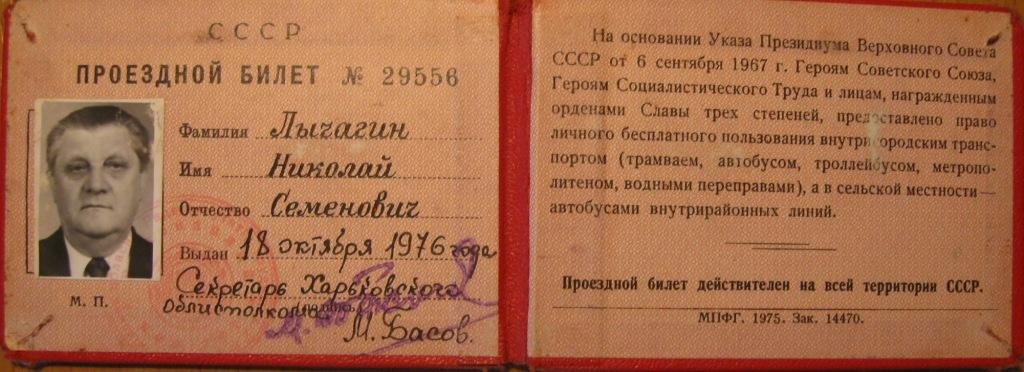 СССР
ПРОЕЗДНОЙ БИЛЕТ № 29556
Фамилия Лычагин
Имя Николай
Отчество Семенович
Выдан 18 октября 1976 года
Секретарь Харьковского
облисполкома
М. П.
М. Басов.
На основании Указа Президиума Верховного Совета
СССР от 6 сентября 1967 г. Героям Советского Союза,
Героям Социалистического Труда и лицам, награжденным
орденами Славы трех степеней, предоставлено право
личного бесплатного пользования внутригородским транс-
портом (трамваем, автобусом, троллейбусом, метропо-
литеном, водными переправами), а в сельской местности—
автобусами внутрирайонных линий.
Проездной билет действителен на всей территории СССР.
МПФГ. 1975. Зак. 14470.